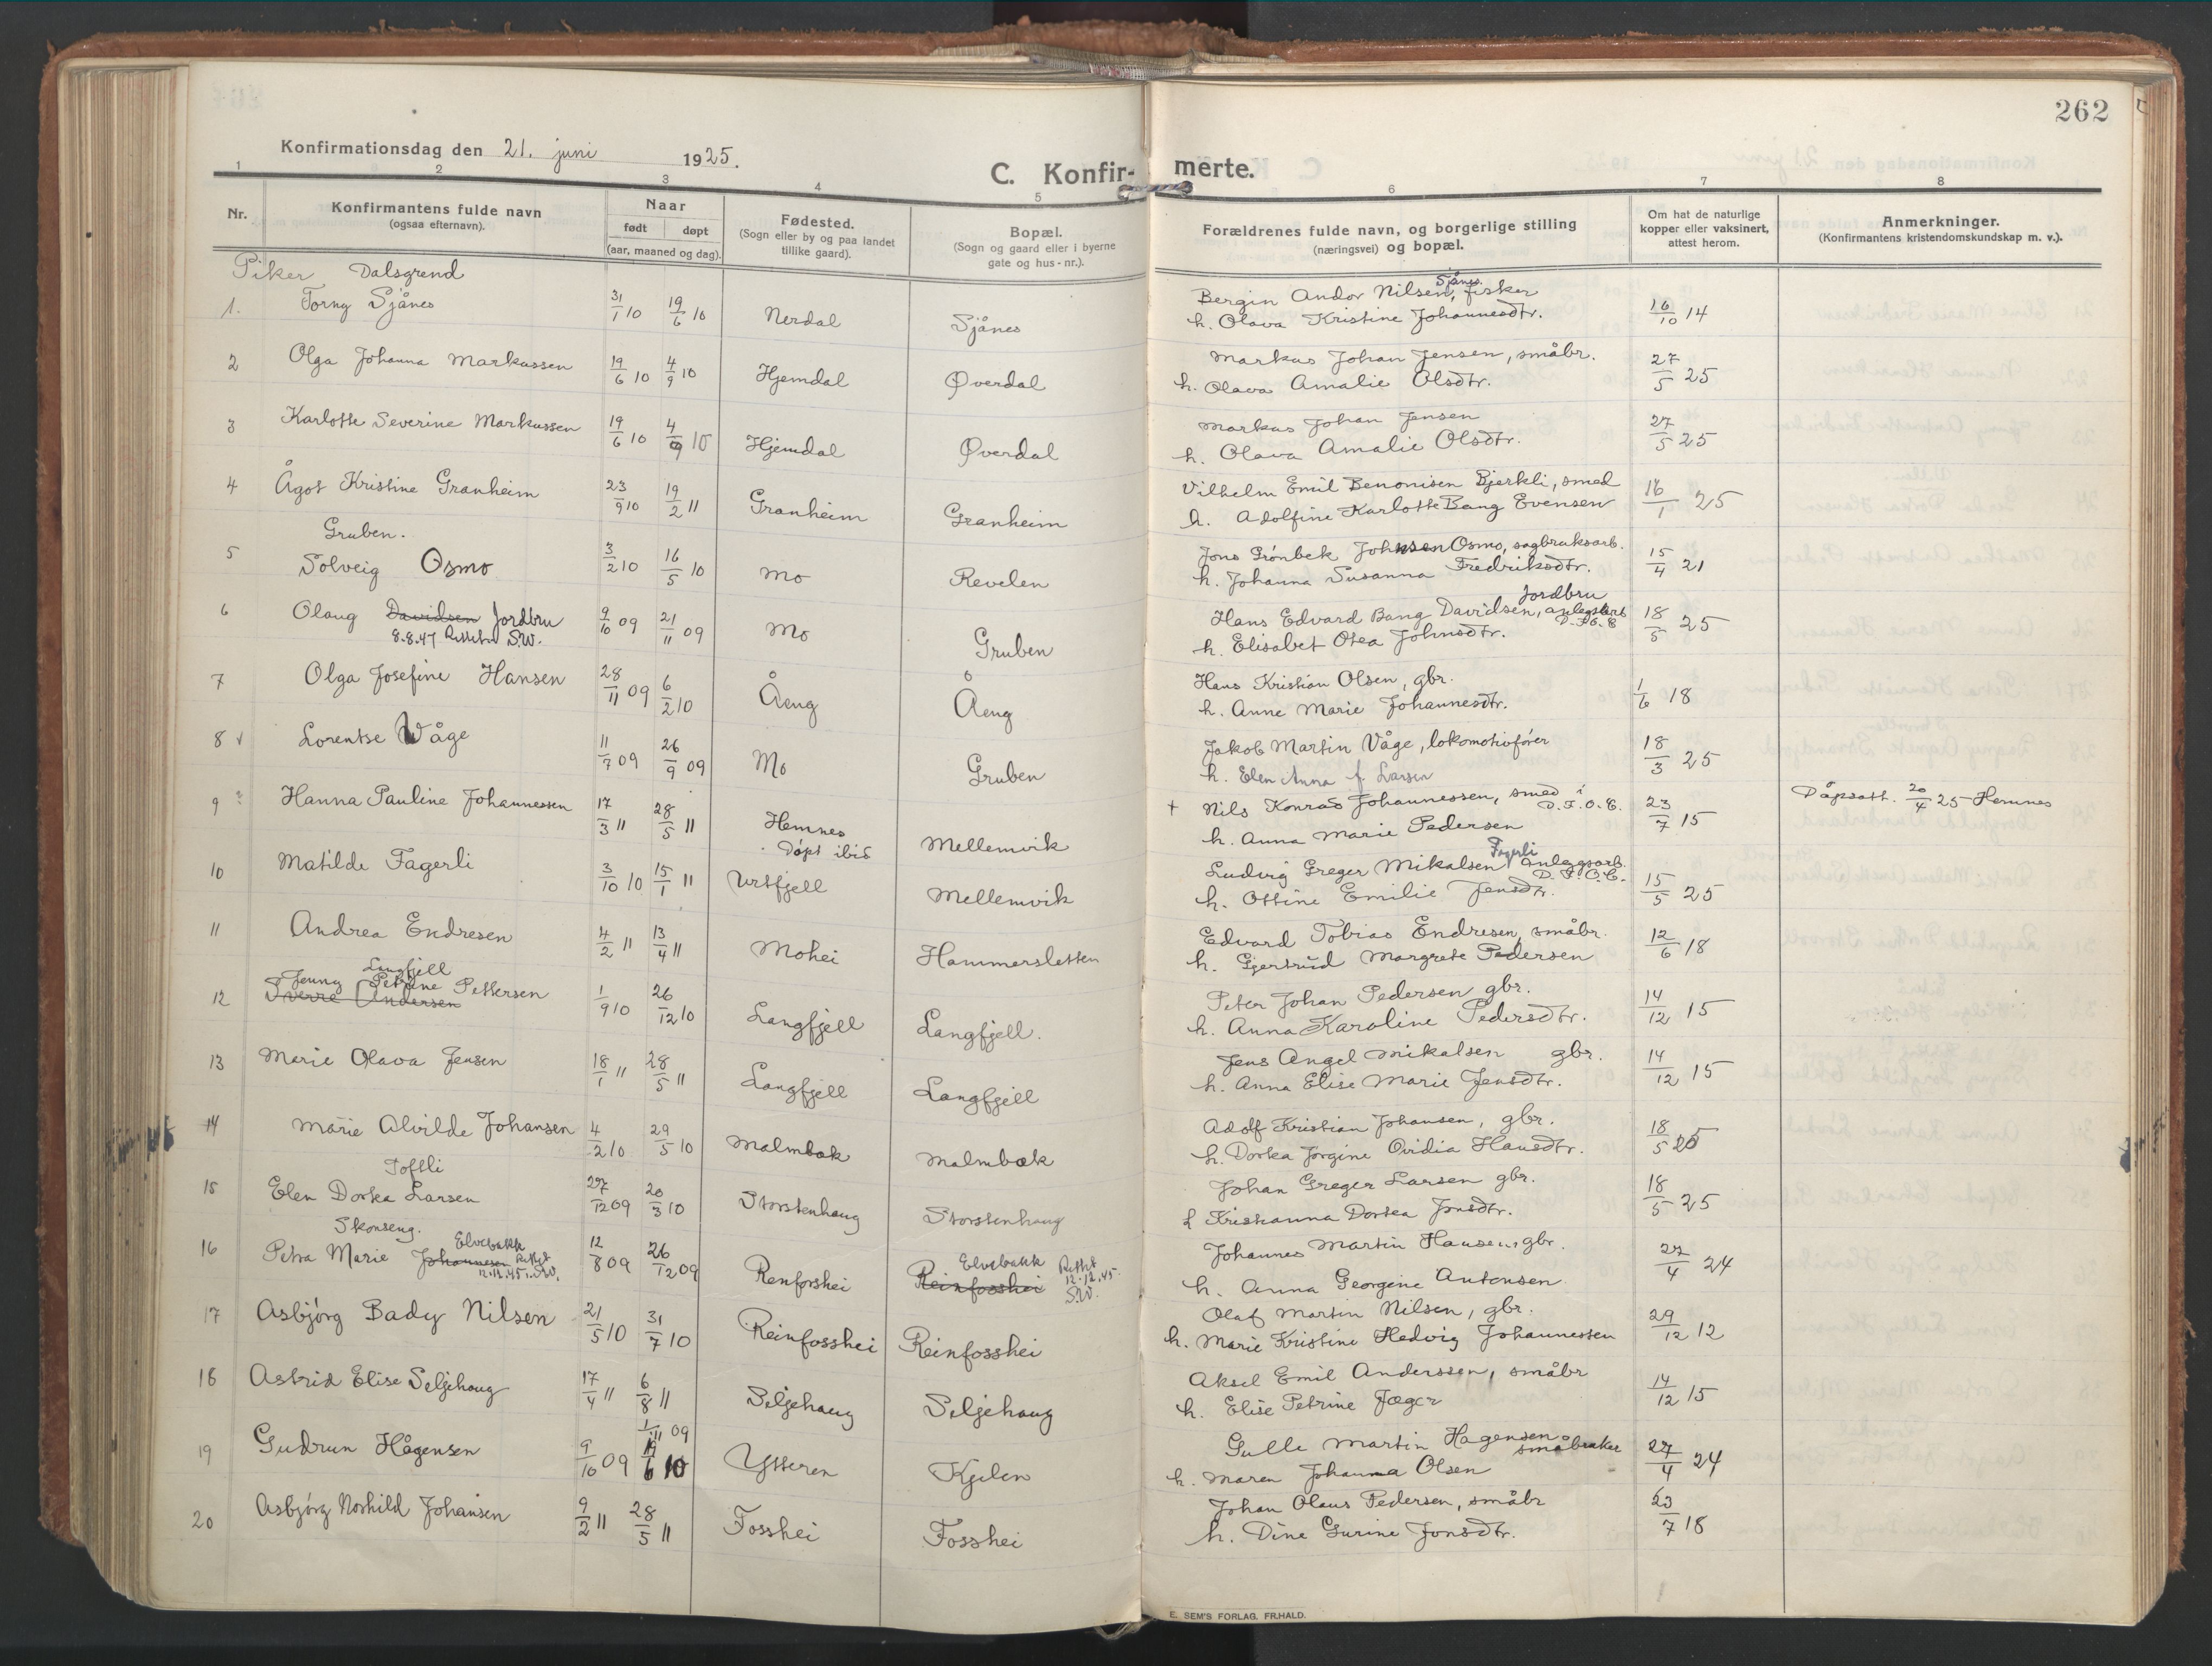 262
Konfirmationsdag den 21. juni 1925.
C. Konfir- merte.
1 2 3 4 5 6 7 8
Nr. Konfirmantens fulde navn (ogsaa efternavn). Naar født døpt (aar, maaned og dag). Fødested. (Sogn eller by og paa landet tillike gaard). Bopæl. (Sogn og gaard eller i byerne gate og hus-nr.). Forældrenes fulde navn, og borgerlige stilling (næringsvei) og bopæl. Om hat de naturlige kopper eller vaksinert, attest herom. Anmerkninger. (Konfirmantens kristendomskundskap m. v.).
Piker Dalsgrend
1. Torny Sjånes 31/1 10 19/6 10 Nerdal Sjånes Bergin Andor Nilsen, Sjånes. fisker 16/10 14
h. Olava Kristine Johannesdtr.
2 Olga Johanna Markussen 19/6 10 4/9 10 Hjemdal Øverdal Markus Johan Jensen, småbr. 27/5 25
h. Olava Amalie Olsdtr.
3 Karlotte Severine Markussen 19/6 10 4/9 10 Hjemdal Øverdal Markus Johan Jensen 27/5 25
h. Olava Amalie Olsdtr.
4 Ågot Kristine Granheim 23/9 10 19/2 11 Granheim Granheim Vilhelm Emil Benonisen Bjerkli, smed 16/1 25
h. Adolfine Karlotte Bang Evensen
Gruben.
5 Solveig Osmo 3/2 10 16/5 10 Mo Revelen Jons Grønbek Johnsen Osmo, sagbruksarb. 15/4 21
h. Johanna Susanna Fredriksdtr.
6 Olaug Davidsen Jordbru 9/10 09 21/11 09 Mo Gruben Hans Edvard Bang Davidsen, Jordbru anlegsarb. 18/5 25
8.8.47 Rettet S.W.
h. Elisabet Otea Johnsdtr.
7 Olga Josefine Hansen 28/11 09 6/2 10 Åeng Åeng Hans Kristian Olsen, gbr. 1/6 18
h. Anne Marie Johannesdtr.
8 v Lorentse Våge 11/7 09 26/9 09 Mo Gruben Jakob Martin Våge, lokomotivfører 18/3 25
h. Elen Anna f. Larsen
9 Hanna Pauline Johannessen 17/3 11 28/5 11 Hemnes Døpt ibid Mellemvik + Nils Konrad Johannessen, smed i D.F.O.C. 23/7 15 Dåpsatt. 20/4 25 Hemnes
h. Anna Marie Pedersen
10 Matilde Fagerli 3/10 10 15/1 11 Urtfjell Mellemvik Ludvig Greger Mikalsen Fagerli anleggsarb. D.F.O.C. 15/5 25
h. Ottine Emilie Jensdtr.
11 Andrea Endresen 4/2 11 13/4 11 Mohei Hammersletten Edvard Tobias Endresen, småbr. 12/6 18
h. Gjertrud Margrete Pedersen
Langfjell
12 Jenny Petrine Pettersen 1/9 10 26/12 10 Langfjell Langfjell. Peter Johan Pedersen gbr. 14/12 15
Sverre Andersen
h. Anna Karoline Pedersdtr.
13 Marie Olava Jensen 18/1 11 28/5 11 Langfjell Langfjell Jens Angel Mikalsen gbr. 14/12 15
h. Anna Elise Marie Jensdtr.
14 Marie Alvilde Johansen 4/2 10 29/5 10 Malmbak Malmbæk Adolf Kristian Johansen, gbr. 18/5 25
h. Dorka Jørgine Ovidia Hansdtr.
Toftli
15 Elen Dortea Larsen 27/12 09 20/3 10 Storstenhaug Storstenhaug Johan Greger Larsen gbr. 18/5 25
h Kristianna Dortea Jonsdtr.
Skonseng.
16 Petra Marie Johannesen Elvebakk Rettet 12.12.45 S.W. 12/8 09 26/12 09 Renforshei Reinfosshei Elvebakk Rettet 12.12.45. S.W. Johannes Martin Hansen, gbr. 27/4 24
h. Anna Georgine Antonsen
17 Asbjørg Bady Nilsen 21/5 10 31/7 10 Reinfosshei Reinfosshei Olaf Martin Nilsen, gbr. 29/12 12
h. Marie Kristine Hedvig Johannessen
18 Astrid Elise Seljehaug 17/4 11 6/8 11 Seljehaug Seljehaug Aksel Emil Anderssen, småbr 14/12 15
h. Elise Petrine Jæger
1/11 09
19 Gudrun Hågensen 9/10 09 19/6 10 Ytteren Kjelen Gulle Martin Hagensen småbruker 27/4 24
h. Maren Johanna Olsen
20 Asbjørg Norhild Johansen 9/2 11 28/5 11 Fosshei Fosshei Johan Olaus Pedersen, småbr 23/7 18
h. Dine Gurine Jonsdtr.
E. SEM'S FORLAG. FR.HALD.